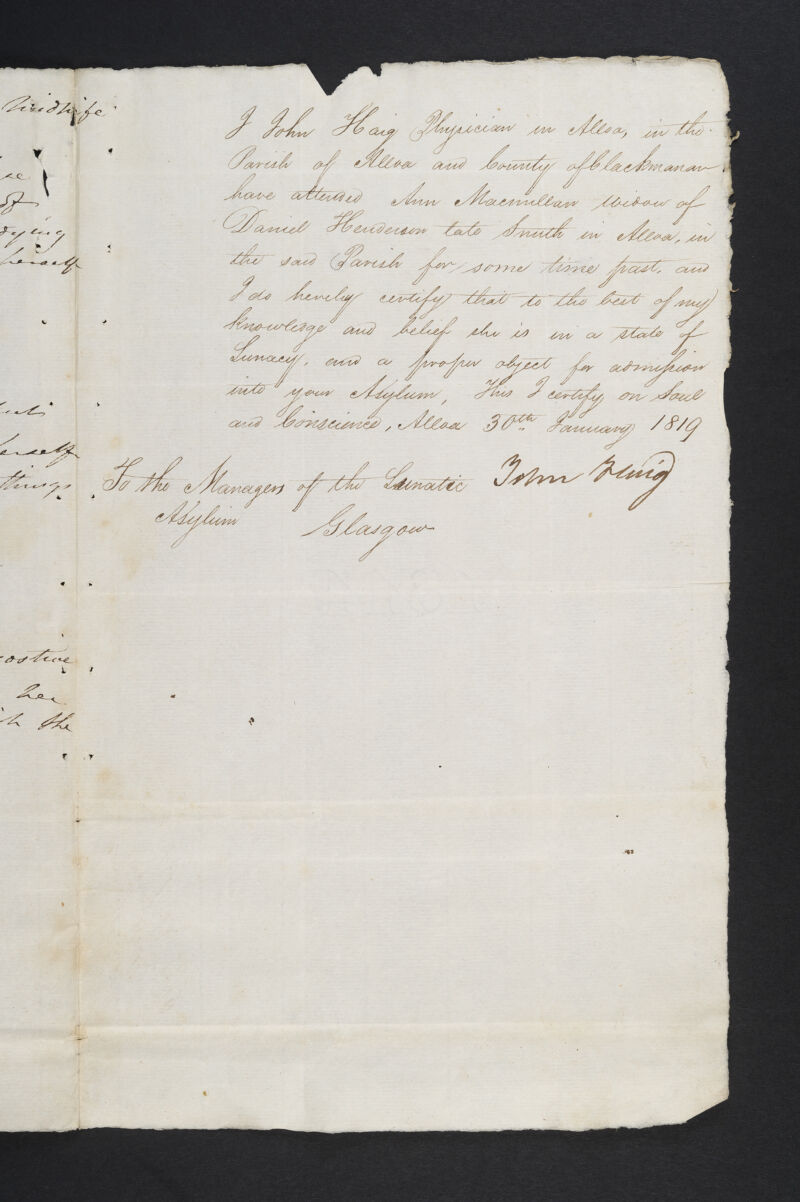 Midwife
dying
herself
herself
things
costive
her
the
I John Haig Physician in Alloa, in the
Parish of Alloa and County of Clackmanan
have attended Ann Macmillan widow of
Daniel Henderson late Smith in Alloa, in
the said Parish for some time past, and
I do hereby certify that to the best of my
knowlege and belief she is in a state of
Lunacy, and a proper object for admission
into your Asylum, This I certify on Soul
and Conscience, Alloa 30th January 1819
To the Managers of the Lunatic John Haig
Asylum Glasgow